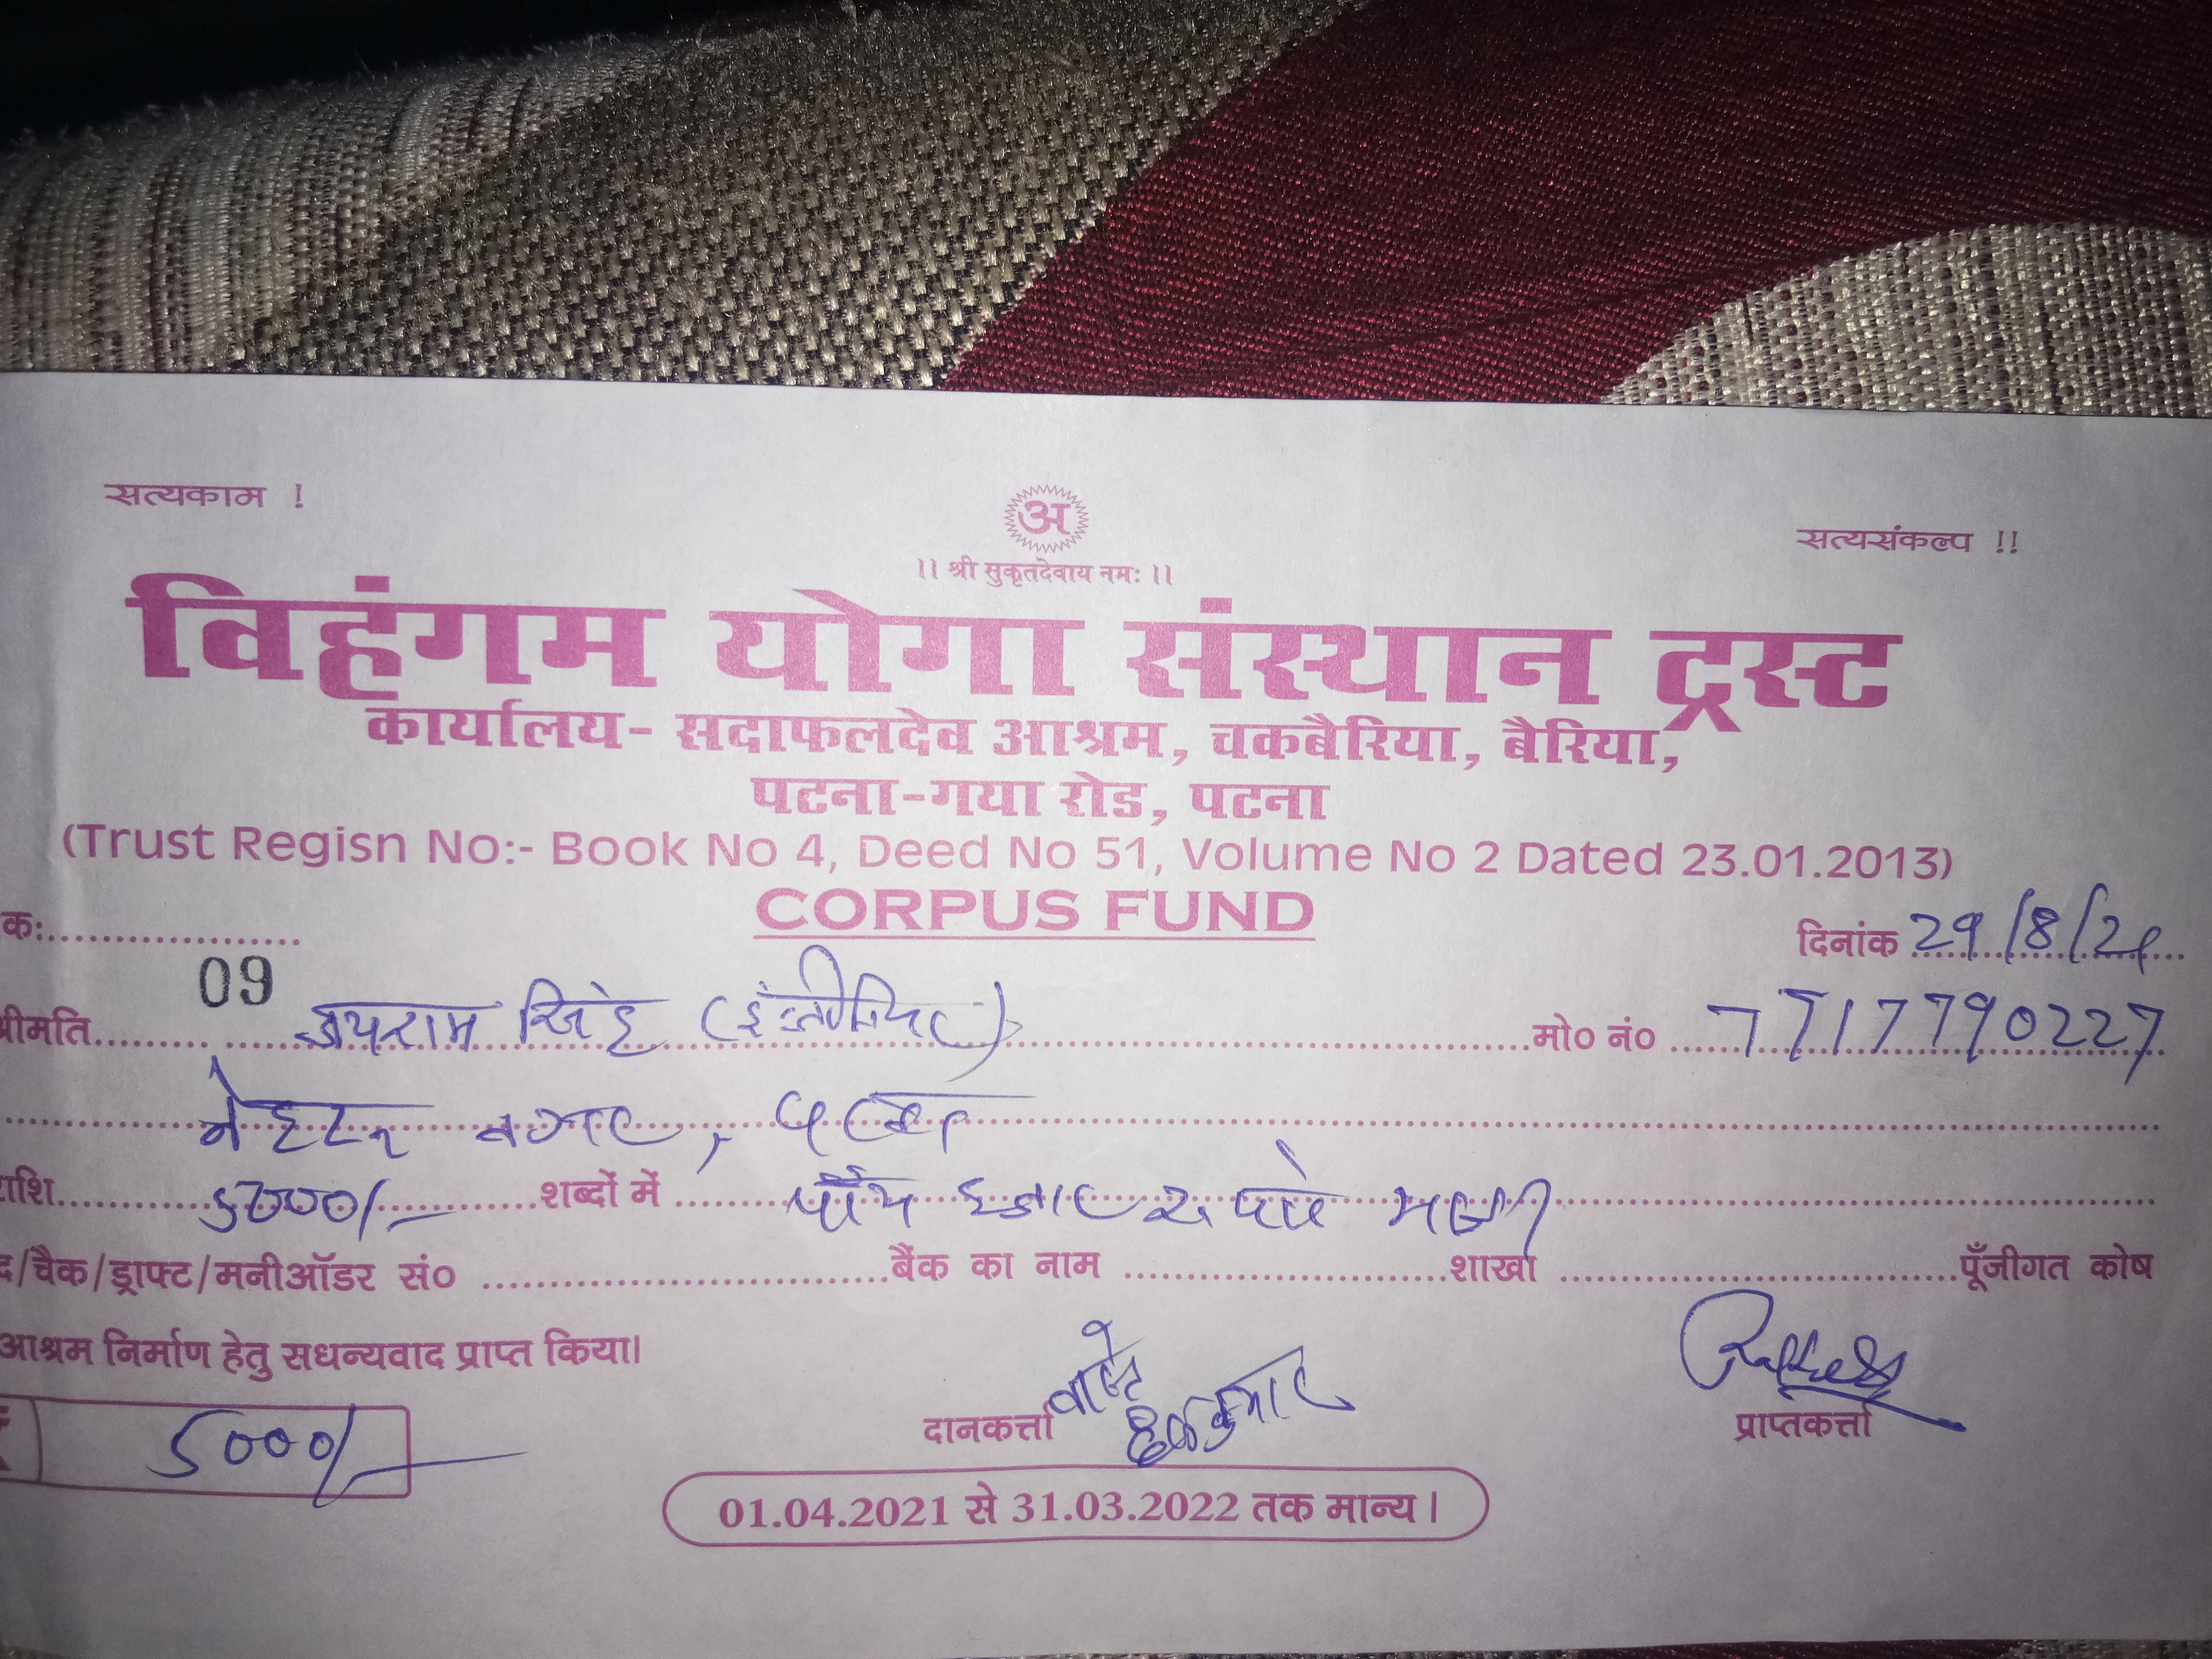 सत्यकाम !
अ
सत्यसंकल्प !!
।। श्री सुकृतदेवाय नमः ।।
विहंगम योगा संस्थान ट्रस्ट
कार्यालय- सदाफलदेव आश्रम, चकबैरिया, बैरिया,
पटना-गया रोड, पटना
(Trust Regisn No:- Book No 4, Deed No 51, Volume No 2 Dated 23.01.2013)
CORPUS FUND
क:.................... दिनांक 29/8/21
09
श्रीमति.......... जयराम सिंह (इंजीनियर) मो० नं० 7717790227
नगर, पटना
राशि 5000/- शब्दों में पाँच हजार रूपये मात्र
द/चैक/ड्राफ्ट/मनीऑडर सं० ........ बैंक का नाम ........ शाखा ........ पूँजीगत कोष
आश्रम निर्माण हेतु सधन्यवाद प्राप्त किया।
₹ 5000/-
दानकर्त्ता वास्ते कुमार प्राप्तकर्त्ता
01.04.2021 से 31.03.2022 तक मान्य।